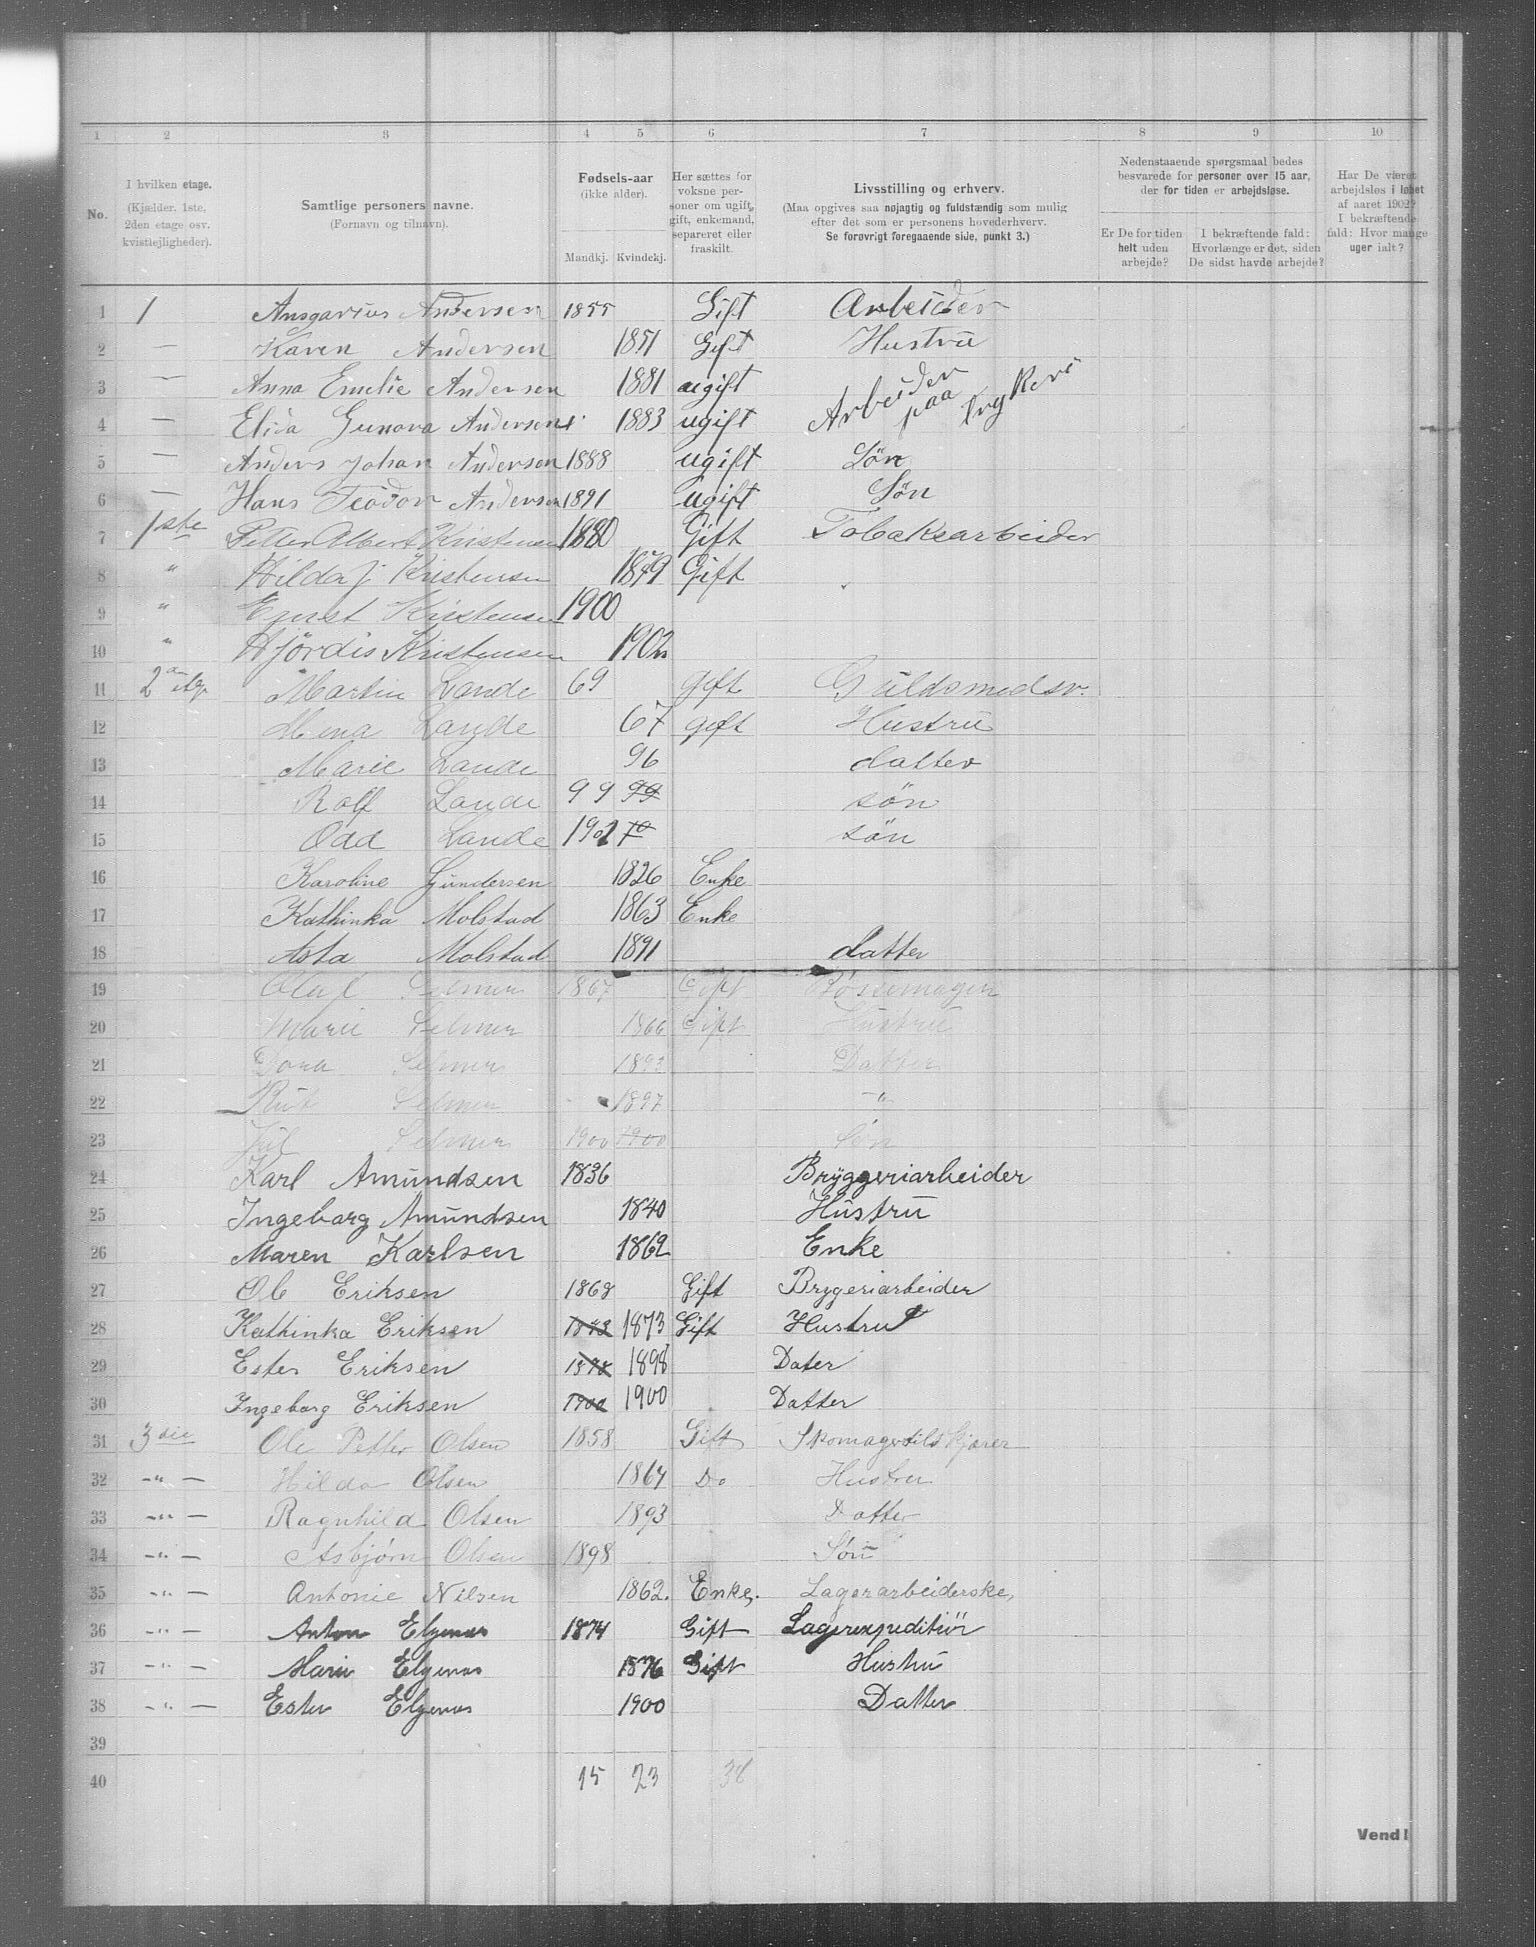 1 2 3 4 5 6 7 8 9 10
No.
I hvilken etage.
(Kjælder. 1ste,
2den etage osv.
kvistlejligheder).
Samtlige personers navne.
(Fornavn og tilnavn).
Fødsels-aar
(ikke alder).
Mandkj. Kvindekj.
Her sættes for
voksne per-
soner om ugift,
gift, enkemand,
separeret eller
fraskilt.
Livsstilling og erhverv.
(Maa opgives saa nøjagtig og fuldstændig som mulig
efter det som er personens hovederhverv.
Se forøvrigt foregaaende side, punkt 3.)
Nedenstaaende spørgsmaal bedes
besvarede for personer over 15 aar,
der for tiden er arbejdsløse.
Er De for tiden
helt uden
arbejde?
I bekræftende fald:
Hvorlænge er det, siden
De sidst havde arbejde?
Har De været
arbejdsløs i løbet
af aaret 1902?
I bekræftende
fald: Hvor mange
uger ialt?
1 1 Ansgarius Andersen 1855 Gift Arbeider
2 — Karen Andersen 1851 Gift Hustru
3 — Anna Emelie Andersen 1881 ugift Arbeider
4 — Elida Gunora Andersen 1883 ugift paa Trykeri
5 — Anders Johan Andersen 1888 ugift Søn
6 — Hans Teodor Andersen 1891 ugift Søn
7 1ste Petter Albert Kristensen 1880 Gift Tobaksarbeider
8 " Hilda J Kristensen 1879 Gift
9 " Ernst Kristensen 1900
10 " Hjördis Kristensen 1902
11 2 Martin Lande 69 gift Guldsmedsv.
12 Mina Lande 67 gift Hustru
13 Marie Lande 96 datter
14 Rolf Lande 99 99 søn
15 Odd Lande 1901 søn
16 Karoline Gundersen 1826 Enke
17 Kathinka Molstad 1863 Enke
18 Asta Molstad 1891 datter
19 Olaf Selmer 1867 Gift Børsemager
20 Marie Selmer 1866 Gift Hustru
21 Dora Selmer 1893 Datter
22 Rut Selmer 1897 —"
23 Selmer 1900 1900 Søn
24 Karl Amundsen 1836 Bryggeriarbeider
25 Ingeborg Amundsen 1840 Hustru
26 Maren Karlsen 1862 Enke
27 Ole Eriksen 1868 Gift Brygeriarbeider
28 Kathinka Eriksen 1873 1873 Gift Hustru
29 Ester Eriksen 1898 1898 Dater
30 Ingeborg Eriksen 1900 1900 Datter
31 3die Ole Petter Olsen 1858 Gift Skomager
32 —"— Hilda Olsen 1864 Do Hustru
33 —"— Ragnhild Olsen 1893 Datter
34 —"— Asbjørn Olsen 1898 Søn
35 —"— Antonie Nilsen 1862. Enke. Lagerarbeiderske,
36 —"— Anton Elgenes 1874 Gift Lagerexpeditiör
37 —"— Marie Elgenes 1876 Gift Hustru
38 —"— Ester Elgenes 1900 Datter
39
40 15 23 38
Vend!